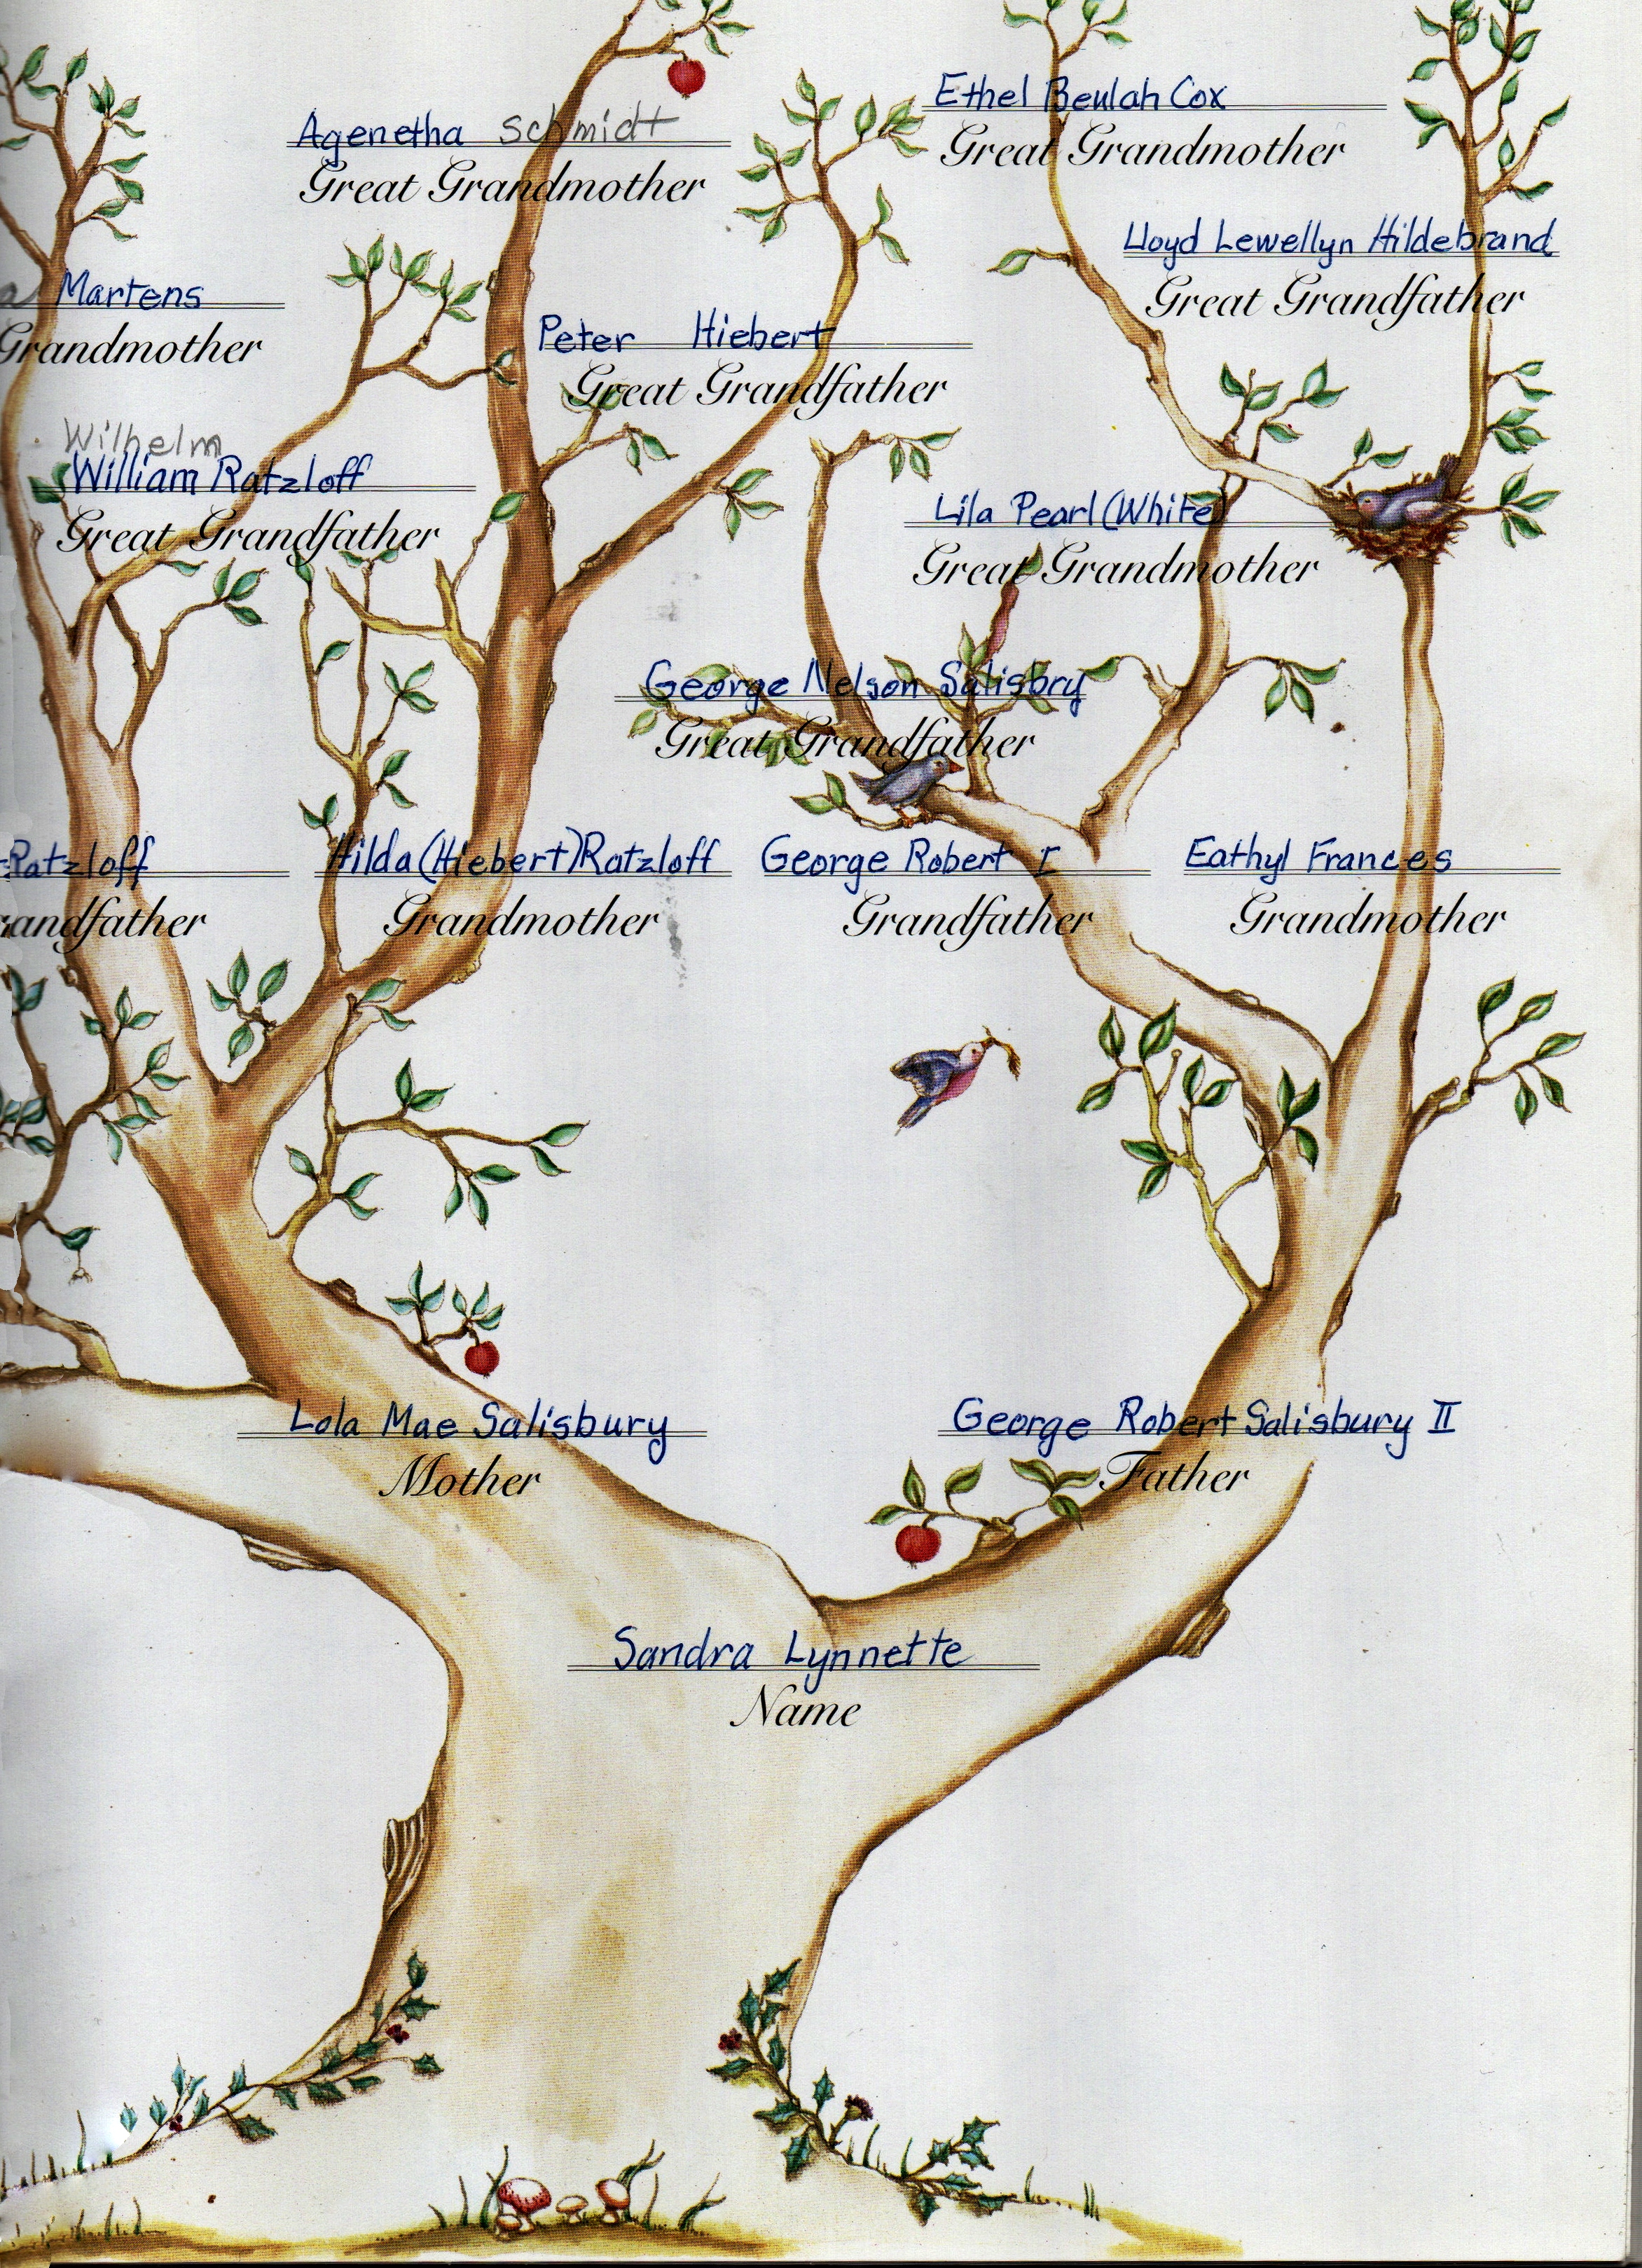 Ethel Beulah Cox
Great Grandmother
Agenetha Schmidt
Great Grandmother
Lloyd Lewellyn Hildebrand
Great Grandfather
Martens
Grandmother
Peter Hiebert
Great Grandfather
Wilhelm
William Ratzloff
Great Grandfather
Lila Pearl (White)
Great Grandmother
George Nelson Salisbry
Great Grandfather
Ratzloff
Hilda (Hiebert) Ratzloff
George Robert I
Eathyl Frances
randfather
Grandmother
Grandfather
Grandmother
Lola Mae Salisbury
George Robert Salisbury II
Mother
Father
Sandra Lynnette
Name